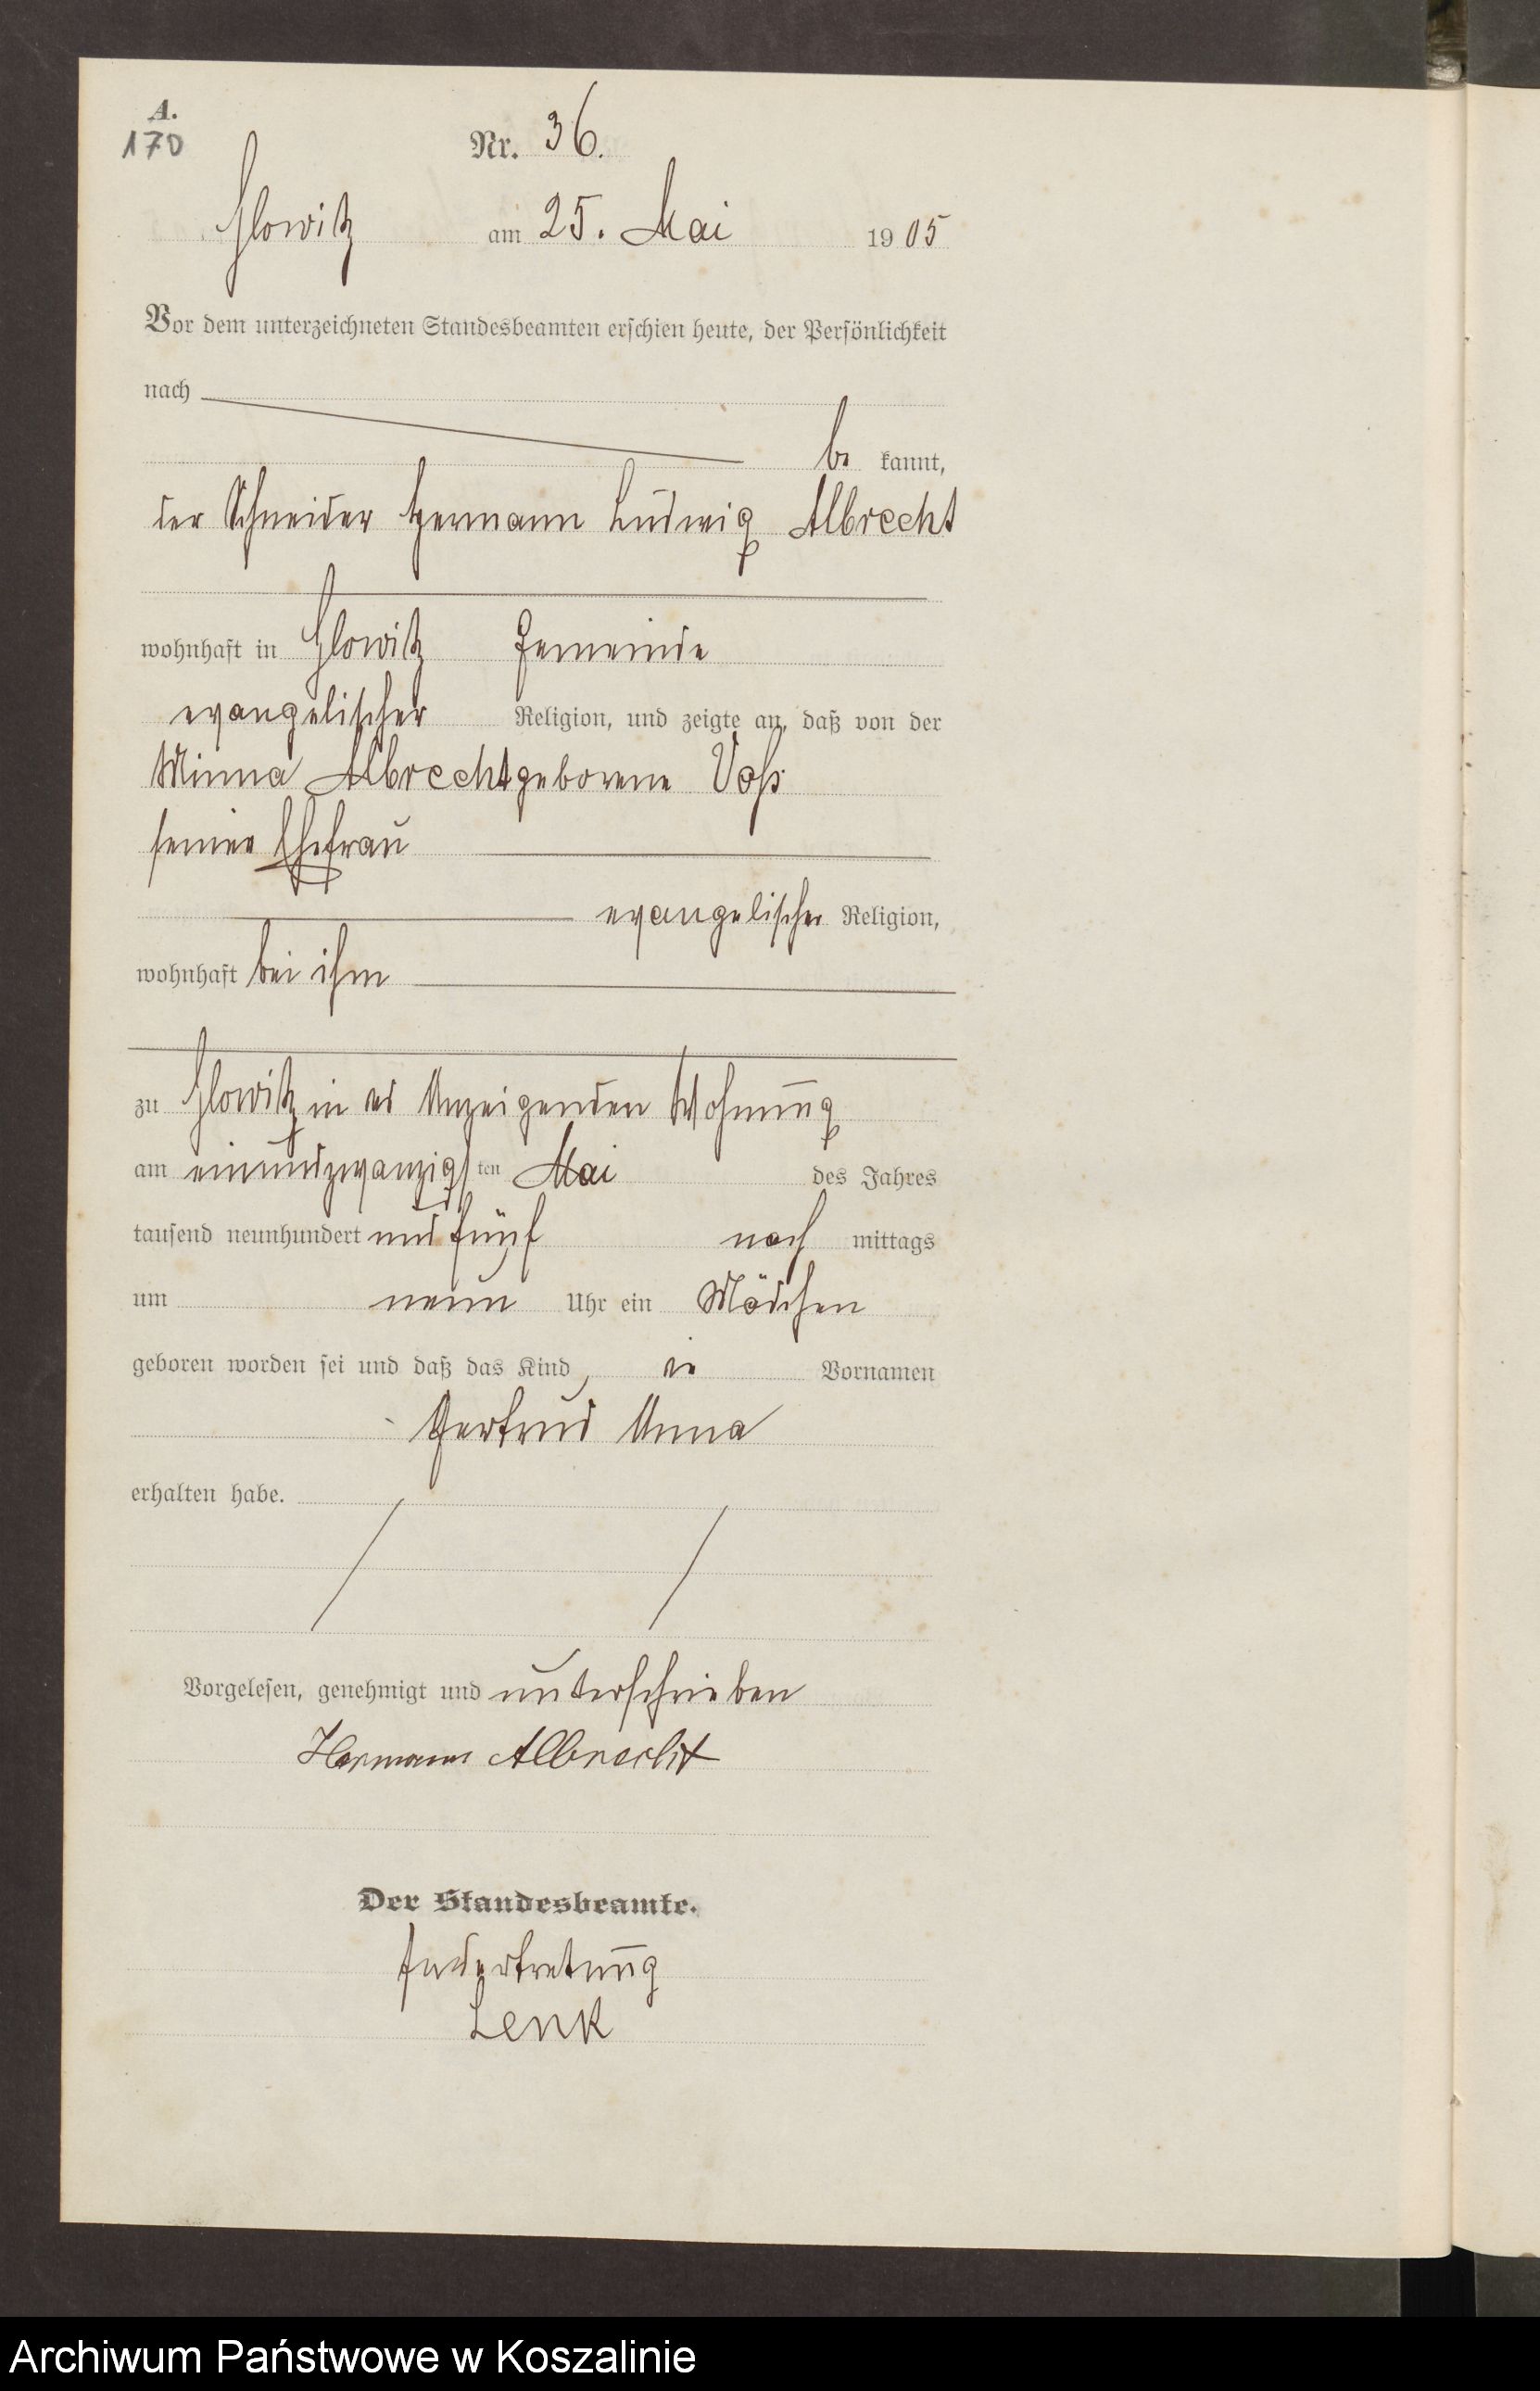 A.
170
Nr. 36.
Glowitz am 25. Mai 1905
Vor dem unterzeichneten Standesbeamten erschien heute, der Persönlichkeit
nach
be kannt,
der Schneider Hermann Ludwig Albrecht
wohnhaft in Glowitz Gemeinde
evangelischer Religion, und zeigte an, daß von der
Minna Albrecht geborene Voß
seiner Ehefrau
evangelischer Religion,
wohnhaft bei ihm
zu Glowitz in des Anzeigenden Wohnung
am einundzwanzigsten Mai des Jahres
tausend neunhundert und fünf nach mittags
um neun Uhr ein Mädchen
geboren worden sei und daß das Kind, die Vornamen
Gertrud Anna
erhalten habe.
Vorgelesen, genehmigt und unterschrieben
Hermann Albrecht
Der Standesbeamte.
In Vertretung
Lenk
Archiwum Państwowe w Koszalinie